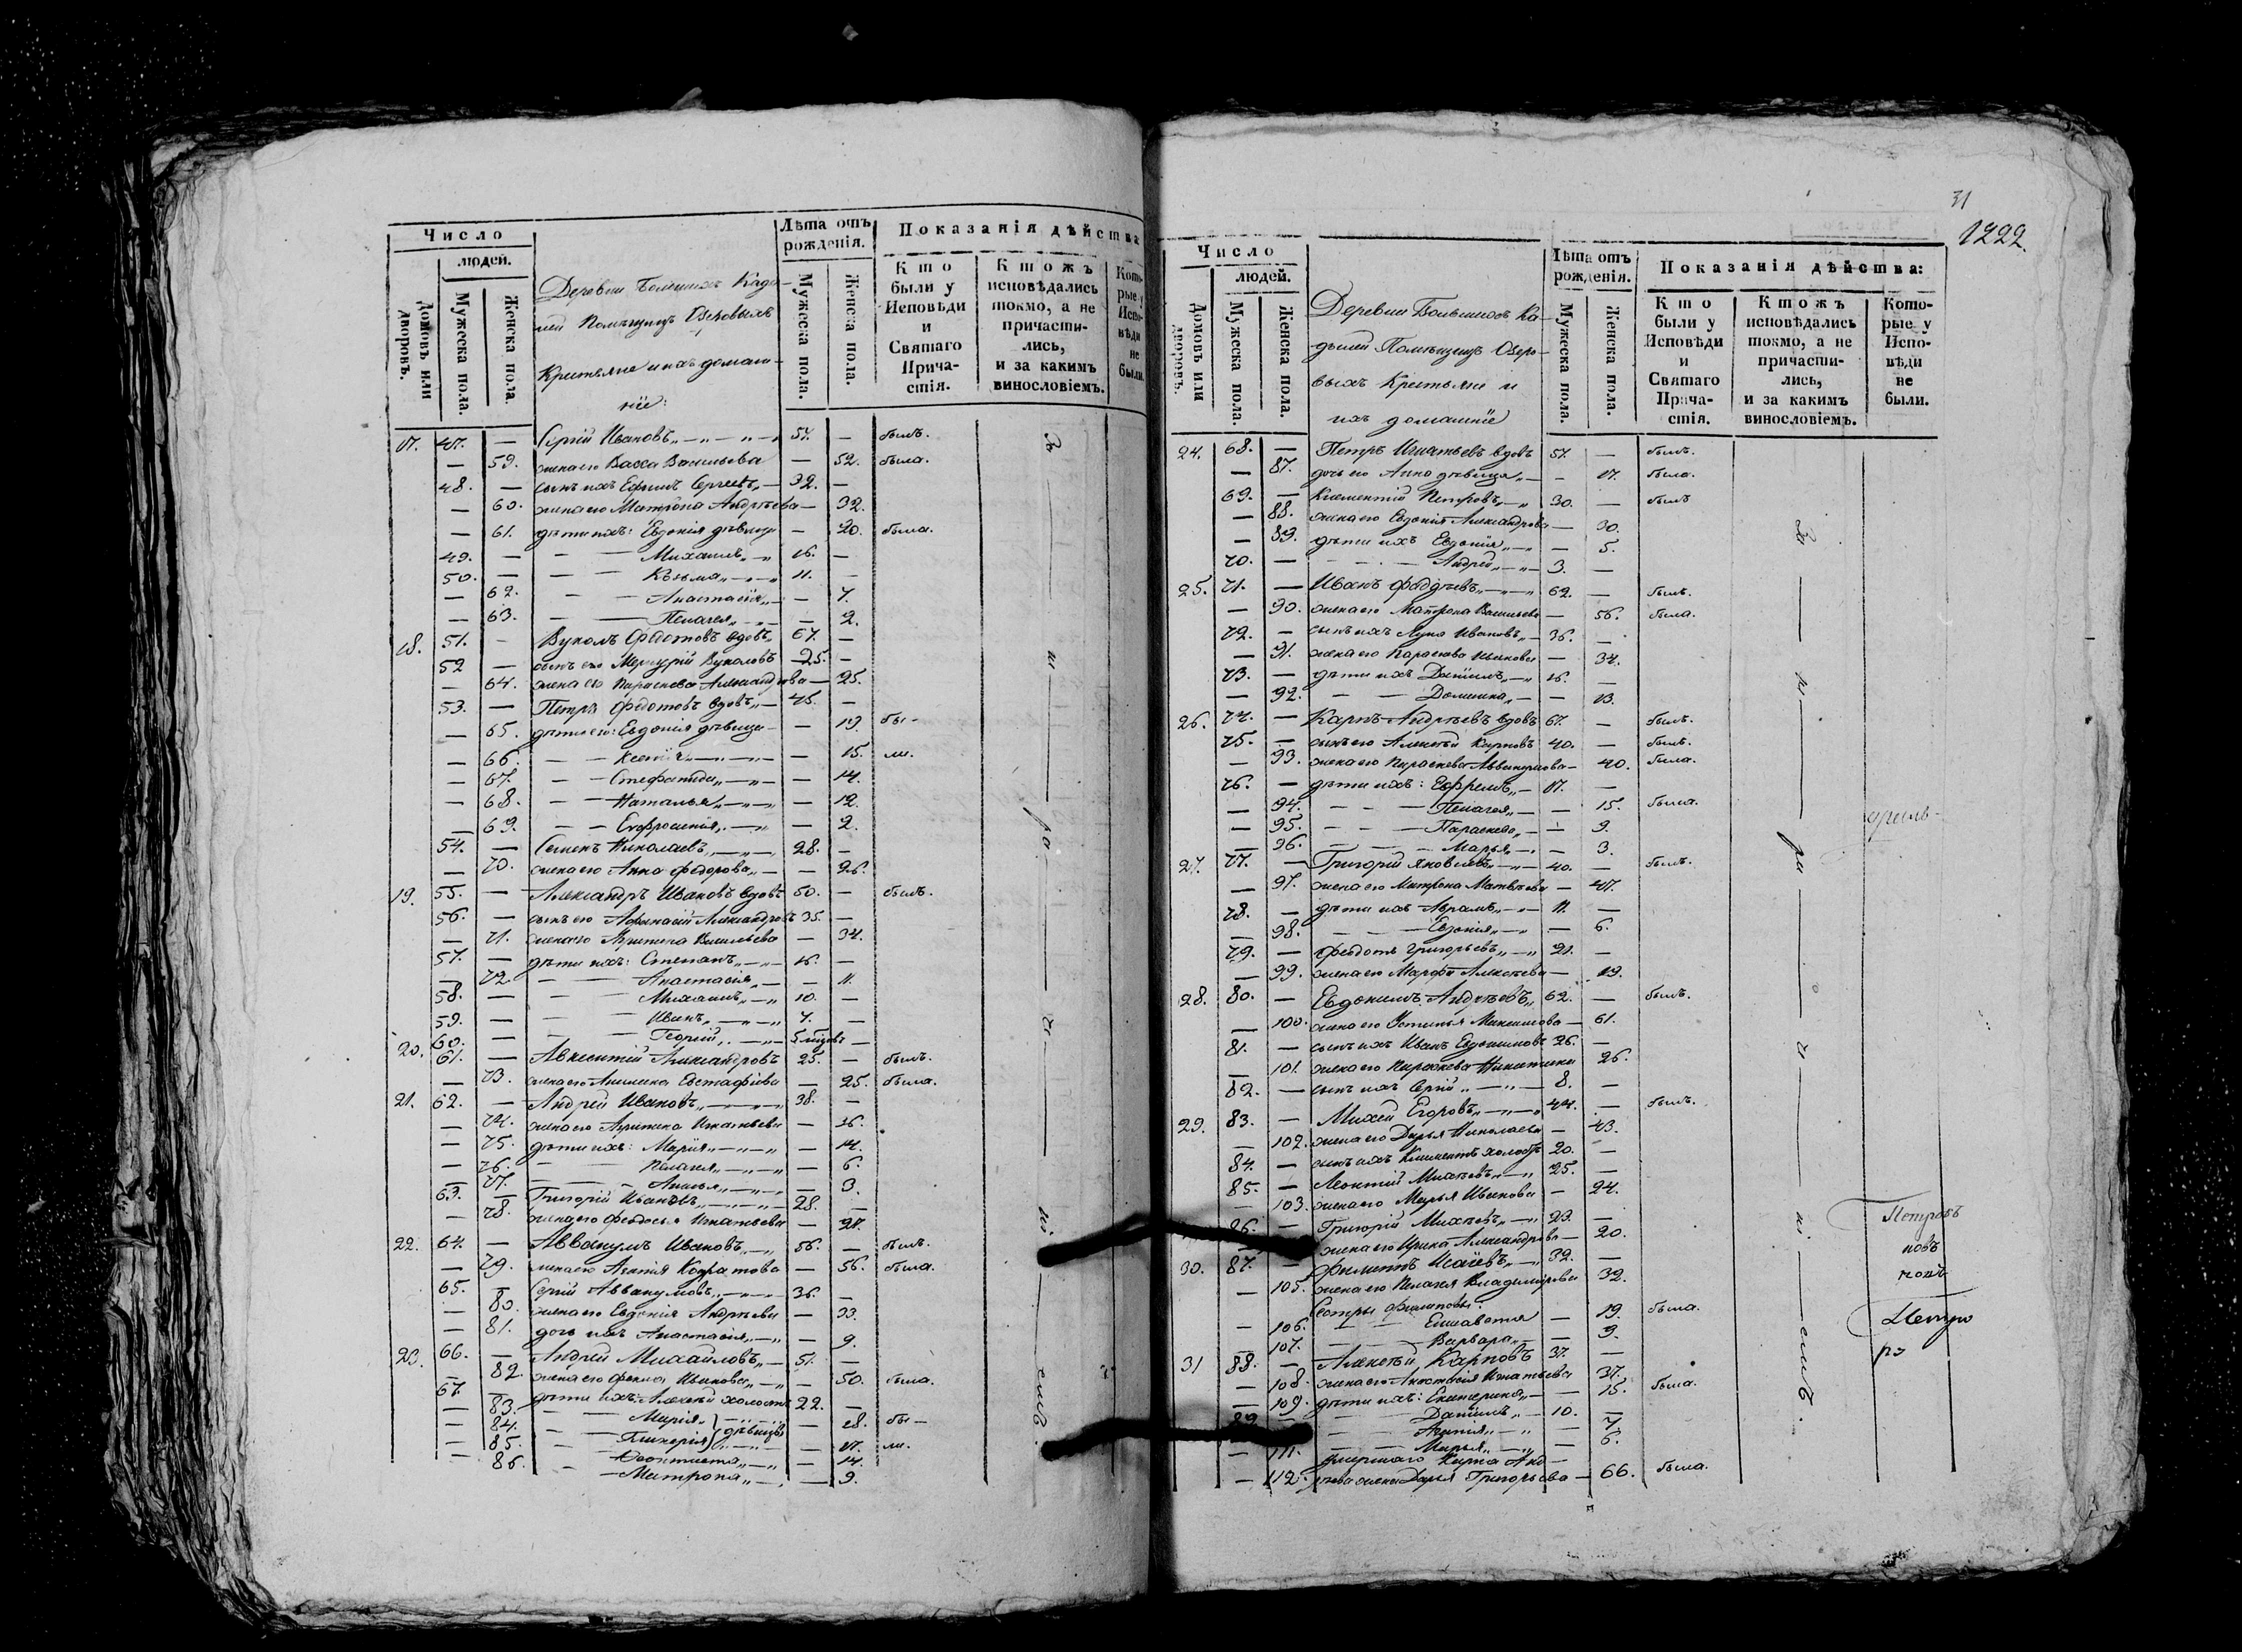 31
1222
Число
людей.
Домовъ или дворовъ.
Мужеска пола.
Женска пола.
Деревни Большихъ Кады-
лей Помѣщицъ
Крестьяне и ихъ домаш-
ніе:
Лѣта отъ рожденія.
Мужеска пола.
Женска пола.
Показанія дѣйства
Кто были у Исповѣди и Святаго Прича-стія.
Ктожъ исповѣдались токмо, а не причасти-лись, и за какимъ винословіемъ.
Кото-рые у Испо-вѣди не были.
17. 47. — Сергій Ивановъ 57. — былъ.
— 59. жена его Васса Васильева — 52. была.
48. — сынъ ихъ Ефимъ Сергѣевъ 32. —
— 60. жена его Матрона Андрѣева — 32.
— 61. дѣти ихъ: Евдокія дѣвица — 20. была.
49. — Михаилъ 16. —
50. — Козьма 11. —
— 62. Анастасія — 7.
— 63. Пелагея — 2.
18. 51. — Вуколъ Ѳедотовъ вдовъ 67. —
52 — сынъ его Меркурій Вуколовъ 25. —
— 64. жена его Параскева Александрова — 25.
53. — Петръ Ѳедотовъ вдовъ 45. —
— 65. дѣти его: Евдокія дѣвица — 19. бы-
— 66. Ксенія — 15. ли.
— 67. Стефанида — 14.
— 68. Наталья — 12.
— 69. Евфросинія — 2.
54. — Семенъ Николаевъ 28. —
— 70. жена его Анна Ѳедорова — 26.
19. 55. — Александръ Ивановъ вдовъ 60. — былъ.
56. — сынъ его Афанасій Александровъ 35. —
— 71. жена его Акулина Васильева — 34.
57. — дѣти ихъ: Степанъ 16. —
— 72. Анастасія — 11.
58. — Михаилъ 10. —
59. — Иванъ 7. —
60. — Георгій —
20. 61. — Авксентій Александровъ 25. — былъ.
— 73. жена его Акилина Евстафіева — 25. была.
21. 62. — Андрей Ивановъ 38. —
— 74. жена его Игнатьева — 36.
— 75. дѣти ихъ: Марія — 14.
— 76. Пелагея — 6.
— 77. — 3.
63. — Григорій Ивановъ 28. —
— 78. жена его Ѳедосья Игнатьева — 27.
22. 64. — Аввакумъ Ивановъ 56. — былъ.
— 79. жена его Агафія Кодратова — 56. была.
65. — Сергій Аввакумовъ 36. —
— 80. жена его Евдокія Андрѣева — 33.
— 81. дочь ихъ Анастасія — 9.
23. 66. — Андрей Михайловъ 51. —
— 82. жена его Ѳекла Иванова — 50. была.
67. — дѣти ихъ: Алексѣй холостъ 22. —
— 83. Марія — 18. бы-
— 84. Гликерія дѣвицы — 17. ли.
— 85. — 14.
— 86. Матрона — 9.
Число
людей.
Домовъ или дворовъ.
Мужеска пола.
Женска пола.
Деревни Большихъ Ка-
дылей Помѣщицъ Озеро-
выхъ Крестьяне и
ихъ домашніе
Лѣта отъ рожденія.
Мужеска пола.
Женска пола.
Показанія дѣйства:
Кто были у Исповѣди и Святаго Прича-стія.
Ктожъ исповѣдались токмо, а не причасти-лись, и за какимъ винословіемъ.
Кото-рые у Испо-вѣди не были.
24. 68. — Петръ Игнатьевъ вдовъ 57. — былъ.
— 87. дочь его Анна дѣвица — 17. была.
69. — Климентій Петровъ 30. — былъ
— 88. жена его Евдокія Александрова — 30.
— 89. дѣти ихъ Евдокія — 5.
70. — Андрей 3. —
25. 71. — Иванъ Ѳаддѣевъ 62. — былъ.
— 90. жена его Матрона Васильева — 56. была.
72. — сынъ ихъ Лука Ивановъ 36. —
— 91. жена его Параскева Иванова — 34.
73. — дѣти ихъ Даніилъ 16. —
— 92. Домника — 13.
26. 74. — Карпъ Андрѣевъ вдовъ 67. — былъ.
75. — сынъ его Алексѣй Карповъ 40. — былъ.
— 93. жена его Параскева Аввакумова — 40. была.
76. — дѣти ихъ: Ефремъ 17. —
— 94. Пелагея — 15. была.
— 95. Параскева — 9.
— 96. Марья — 3.
27. 77. — Григорій Яковлевъ 40. — былъ.
— 97. жена его Матрона Матвѣева — 47.
78. — дѣти ихъ Авраамъ 11. —
— 98. Евдокія — 6.
79. — Ѳеодотъ Григорьевъ 21. —
— 99. жена его Марфа Алексѣева — 19.
28. 80. — Евдокимъ Андрѣевъ 62. — былъ.
— 100. жена его Устинья Максимова — 61.
81. — сынъ ихъ Иванъ Евдокимовъ 26. —
— 101. жена его Параскева Никитина 26.
82. — сынъ ихъ Сергій 8. —
29. 83. — Михей Егоровъ 44. — былъ.
— 102. жена его Дарья Николаева — 43.
84. — сынъ ихъ Климентъ холостъ 20. —
85. — Леонтій Михѣевъ 25. —
— 103. жена его Марья Иванова — 24.
86. — Григорій Михѣевъ 23. —
жена его Ирина Александрова — 20.
30. 87. — Филиппъ Исаіевъ 32. —
— 105. жена его Пелагея Владимірова 32.
Сестры Филиповы:
— 106. Елисавета — 19. была.
— 107. Варвара — 9.
31 88. — Алексѣй Карповъ 37. —
— 108. жена его Анастасія Игнатьева 37.
— 109. дѣти ихъ: Екатерина — 15. была.
89 — Даніилъ 10. —
Агафія — 7.
— 111. Марья — 6.
умершаго Карпа Анд-
— 112. рѣева жена Дарья Григорьева — 66. была.
Петровъ